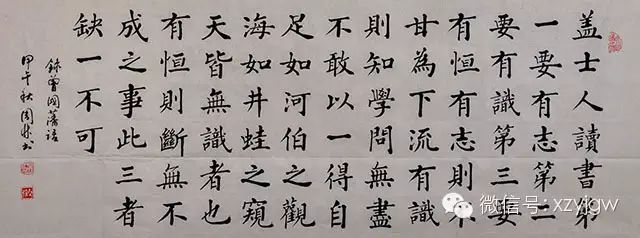 盖士人讀書第
一要有志第二
要有識第三要
有恒有志則不
甘為下流有識
則知學問無盡
不敢以一得自
足如河伯之觀
海如井蛙之窺
天皆無識者也
有恒則斷無不
成之事此三者
缺一不可
錄曾國藩語
甲午秋周书
微信号: xzyjgw